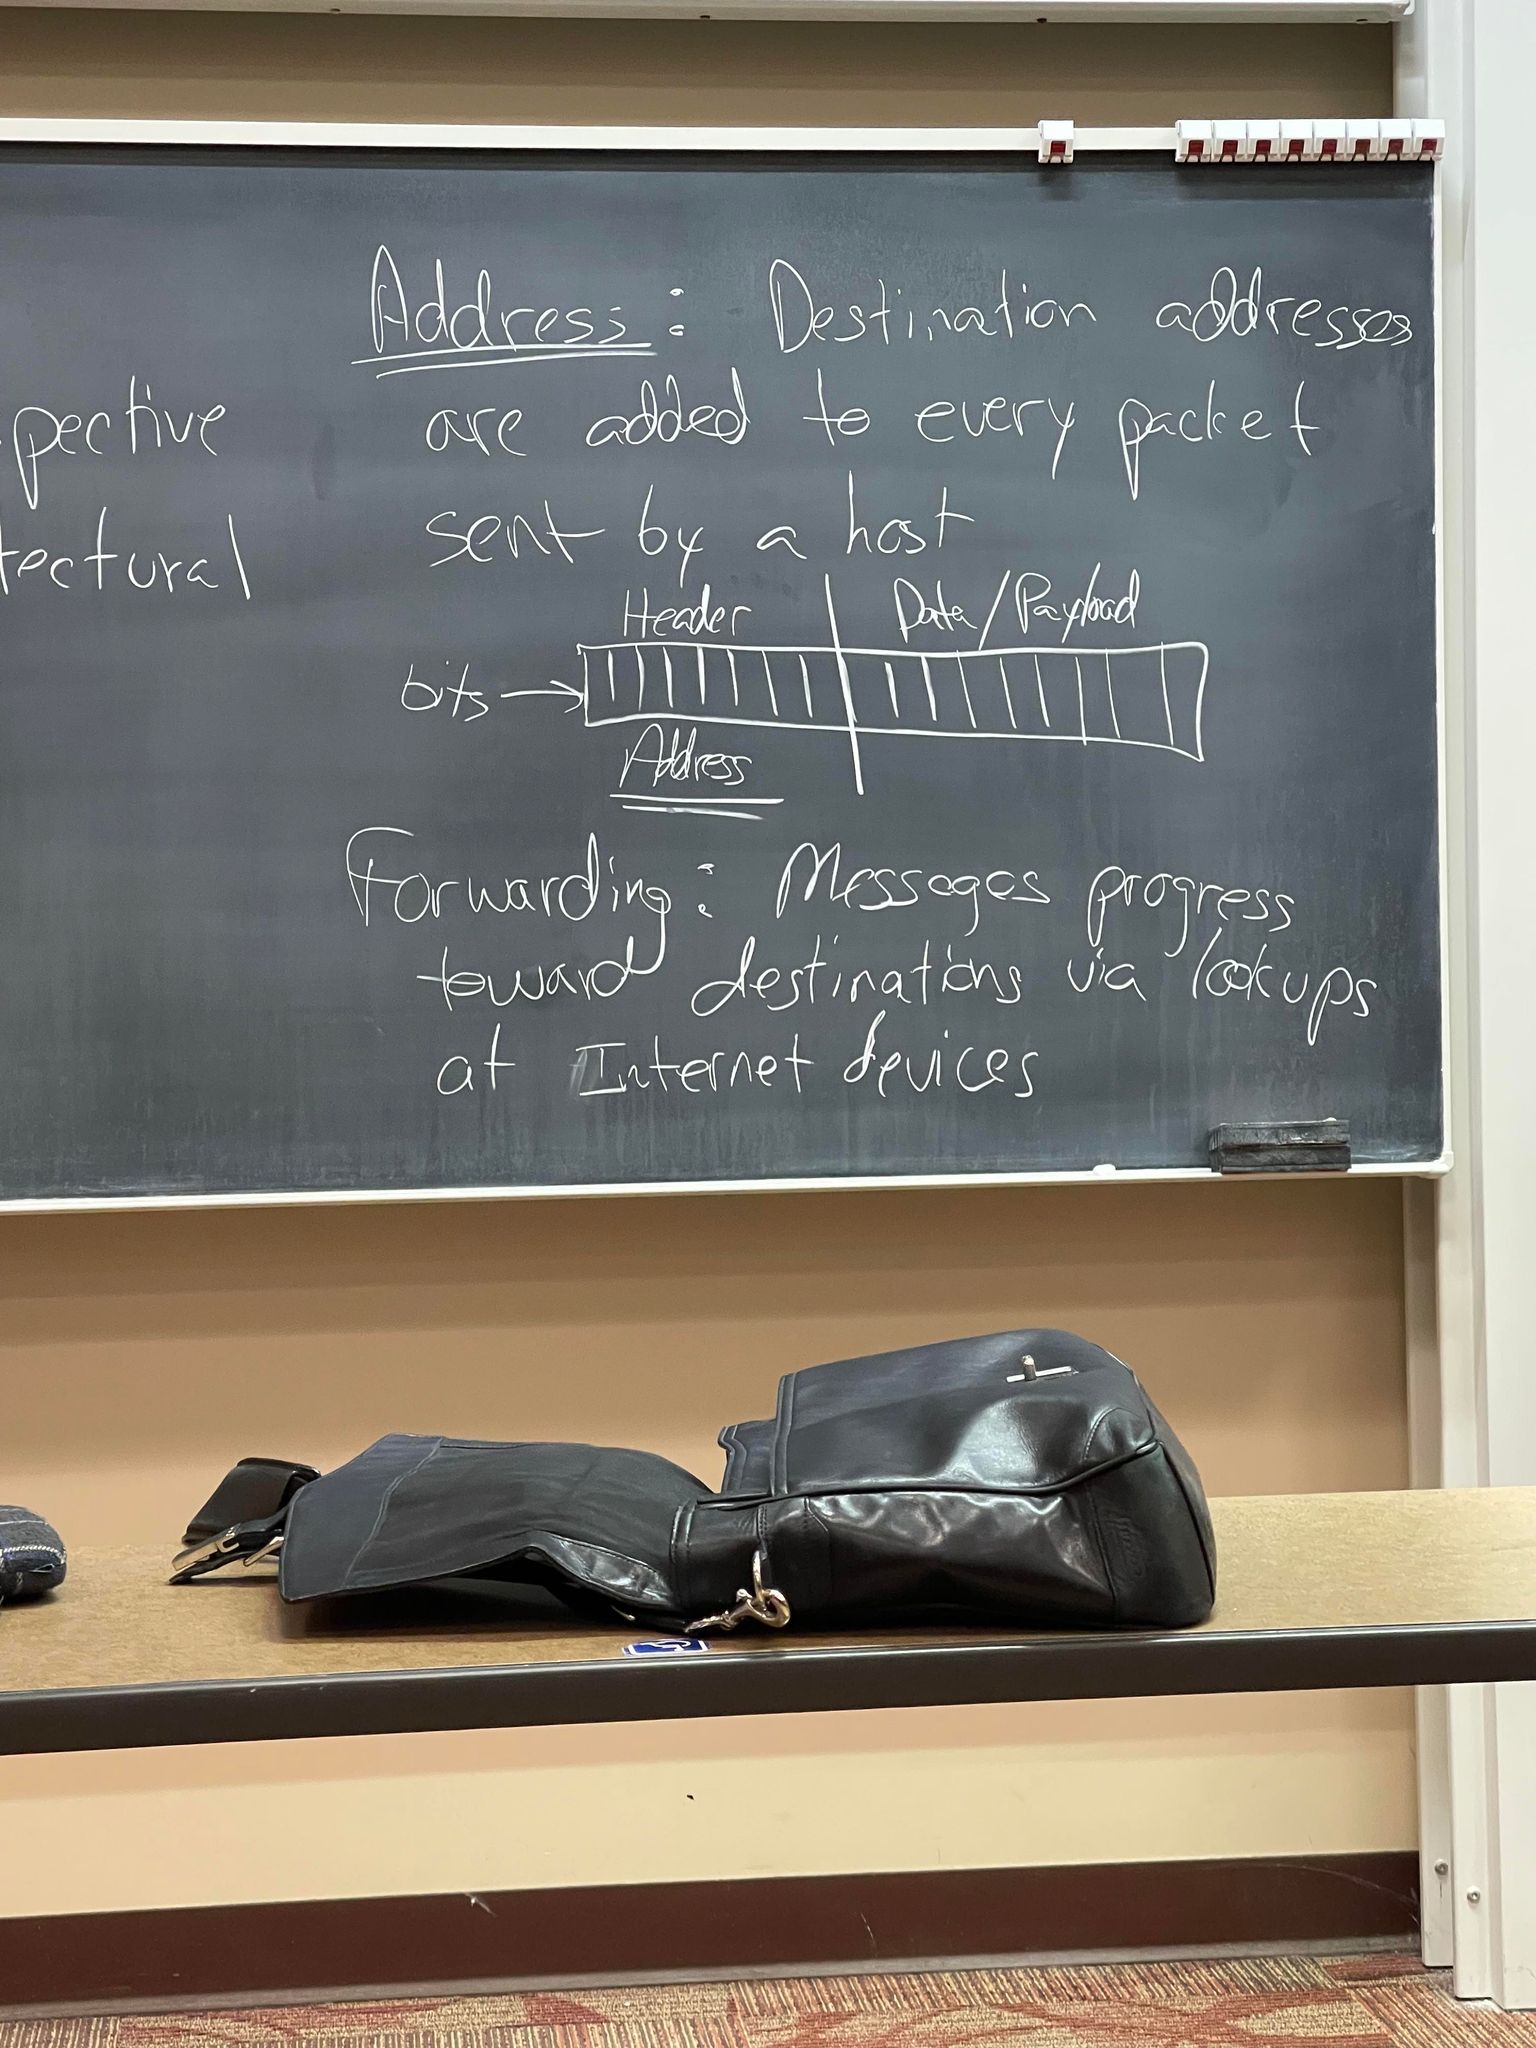 pective
tectural
Address: Destination addresses
are added to every packet
sent by a host
Header Data/Payload
bits →
Address
Forwarding: Messages progress
toward destinations via lookups
at Internet devices